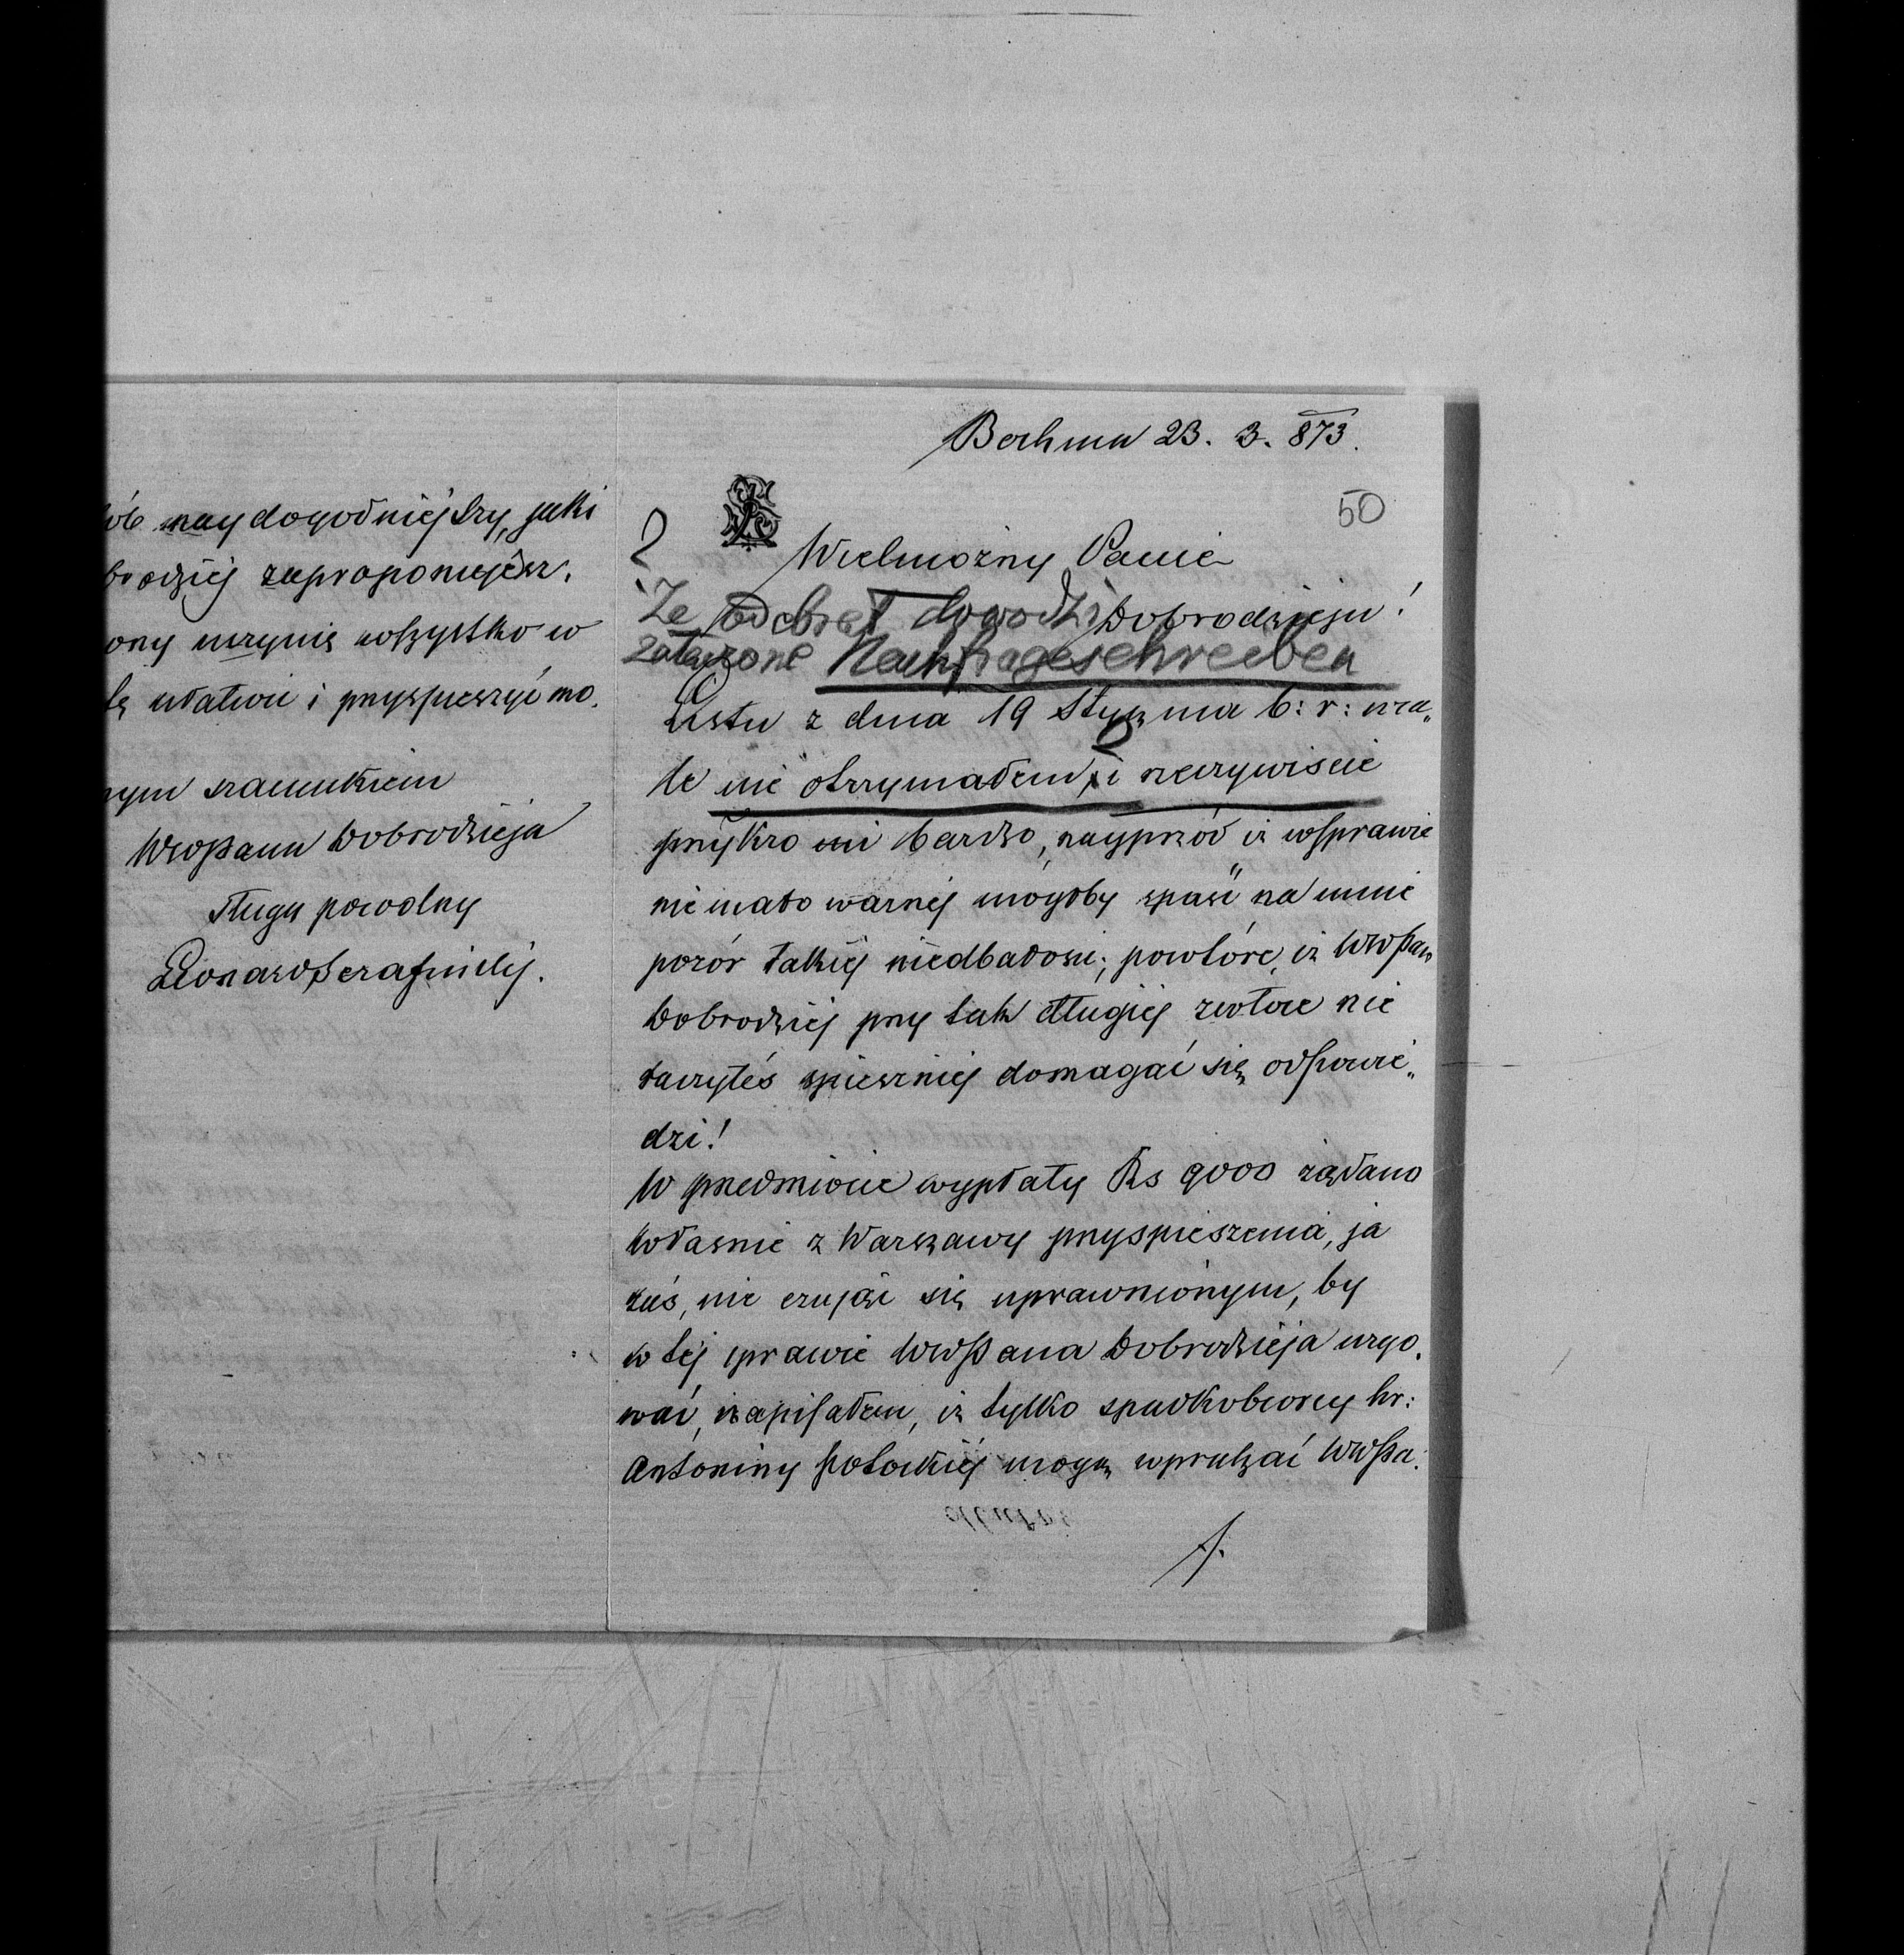 ób nay dogodniéjszy, jaki
brodziéj zaproponujesz.
ony uczynię wszystko w
tę ułatwić i przyspieszyć mo.
nym szacunkiem
WWPana Dobrodzieja
sługa powolny
Leonard Serafińskj.
Bochnia 23. 3. 873.
50
2
LS
Wielmożny Panie
Dobrodzieju!
Że odebrał dowodzi
załączone Nachfrageschreiben
Listu z dnia 19 Stycznia b: r: wca„
le nie otrzymałem, i rzeczywiście
przykro mi bardzo, nayprzód iż w sprawie
nie mało ważnéj mógłby spaść na mnie
pozór takiéj niedbałości; powtóre, iż WWPan
Dobrodziéj przy tak długiéj zwłoce nie
raczyłeś spieszniéj domagać się odpowie„
dzi!
W przedmiocie wypłaty Rs 9000 żądano
właśnie z Warszawy przyspieszenia, ja
zaś, nie czując się uprawnionym, by
w téj sprawie WWPana Dobrodzieja urgo.
wać, napisałem, iż tylko spadkobiorcy hr:
Antoniny Potockiéj mogą wprutzać WWPa.